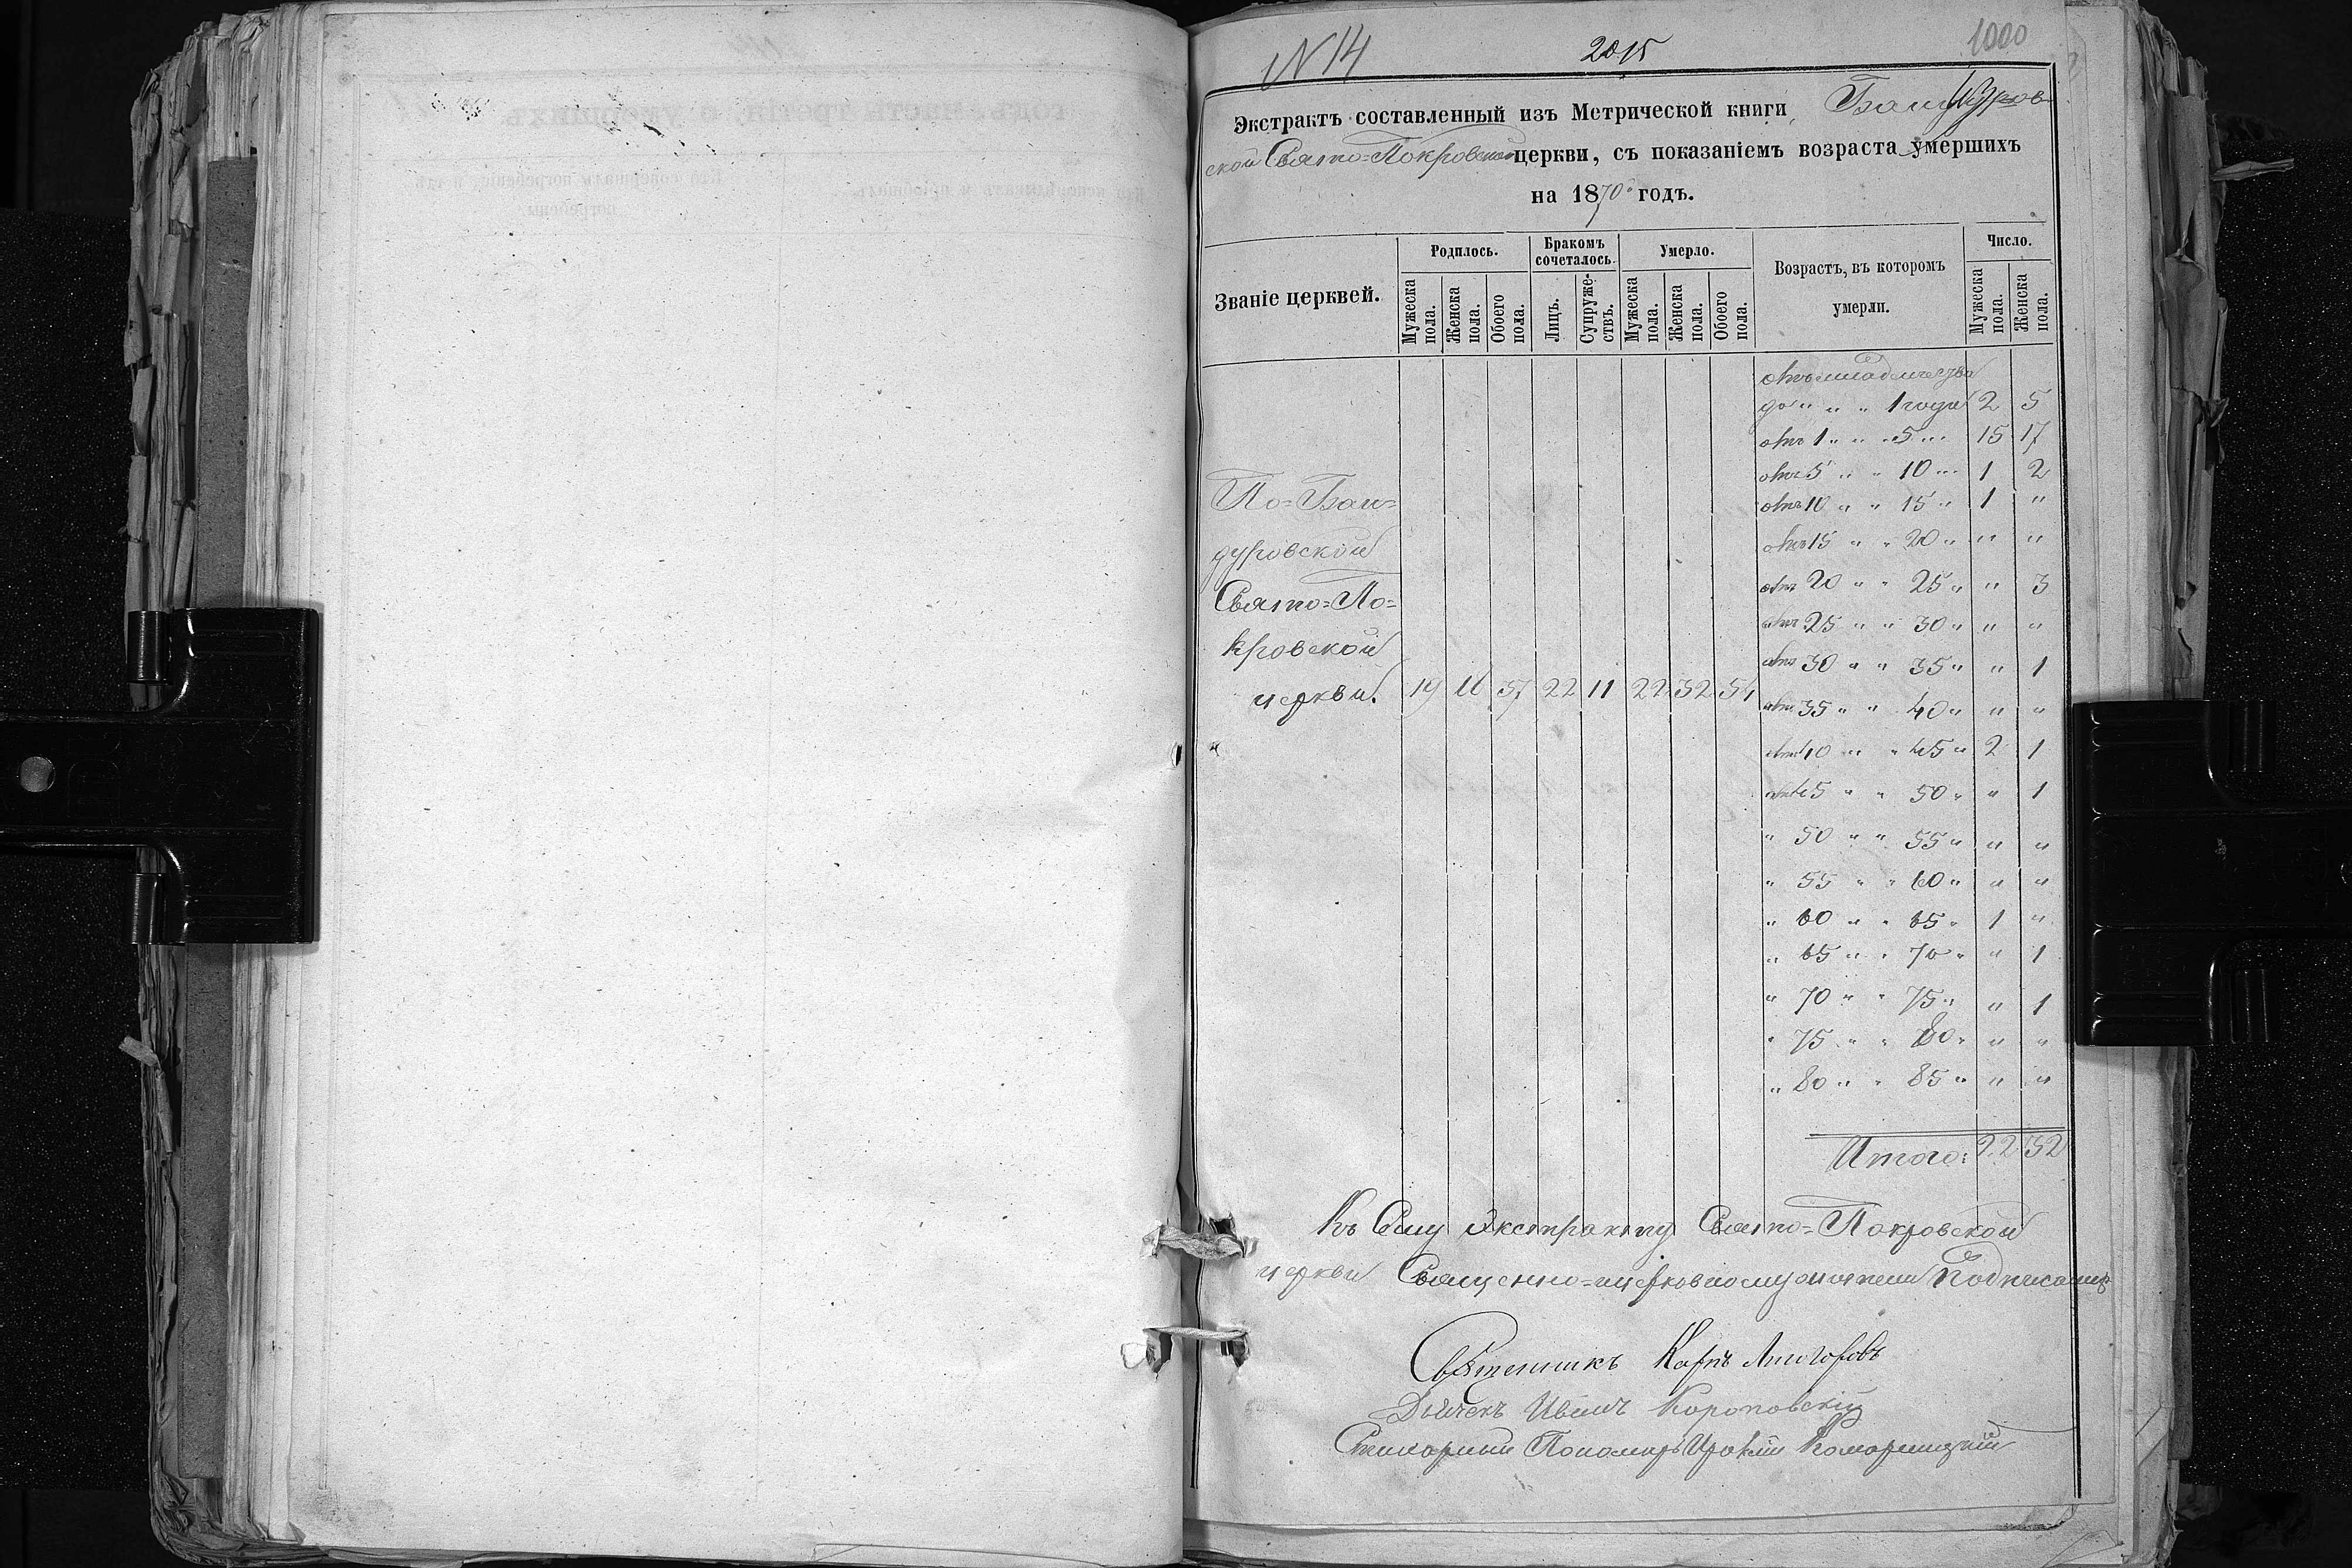 N 14 2015 1000
Экстрактъ составленный изъ Метрической книги Бандуров
ской Свято=Покровской церкви, съ показаніемъ возраста умершихъ
на 1870 годъ.
Званіе церквей.
Родилось.
Бракомъ сочеталось.
Умерло.
Возрастъ, въ которомъ умерли.
Число.
Мужеска пола. Женска пола. Обоего пола. Лицъ. Супружествъ. Мужеска пола. Женска пола. Обоего пола. Мужеска пола. Женска пола.
По=Бан=
дуровской
Свято=По=
кровской
церкви. 19 57 22 11 22 32 54
отъ младенчества
до " " " 1 года 2 5
отъ 1 " " " 5 " " 15 17
отъ 5 " " 10 " " 1 2
отъ 10 " " 15 " 1 "
отъ 15 " " 20 " " "
отъ 20 " " 25 " " 3
отъ 25 " " 30 " " "
отъ 30 " " 35 " " 1
отъ 35 " " 40 " " "
отъ 40 " " 45 " 2 1
отъ 45 " " 50 " " 1
" 50 " " 55 " " "
" 55 " " 60 " " "
" 60 " " 65 " 1 "
" 65 " " 70 " " 1
" 70 " " 75 " " 1
" 75 " " 80 " " "
" 80 " " 85 " " "
Итого: 22 32
Къ Сему Экстракту Свято=Покровской
церкви Священно=церковнослужители Подписались
Священникъ Карпъ
Дьячекъ Иванъ Короповскій
Пономарь Комарницкій